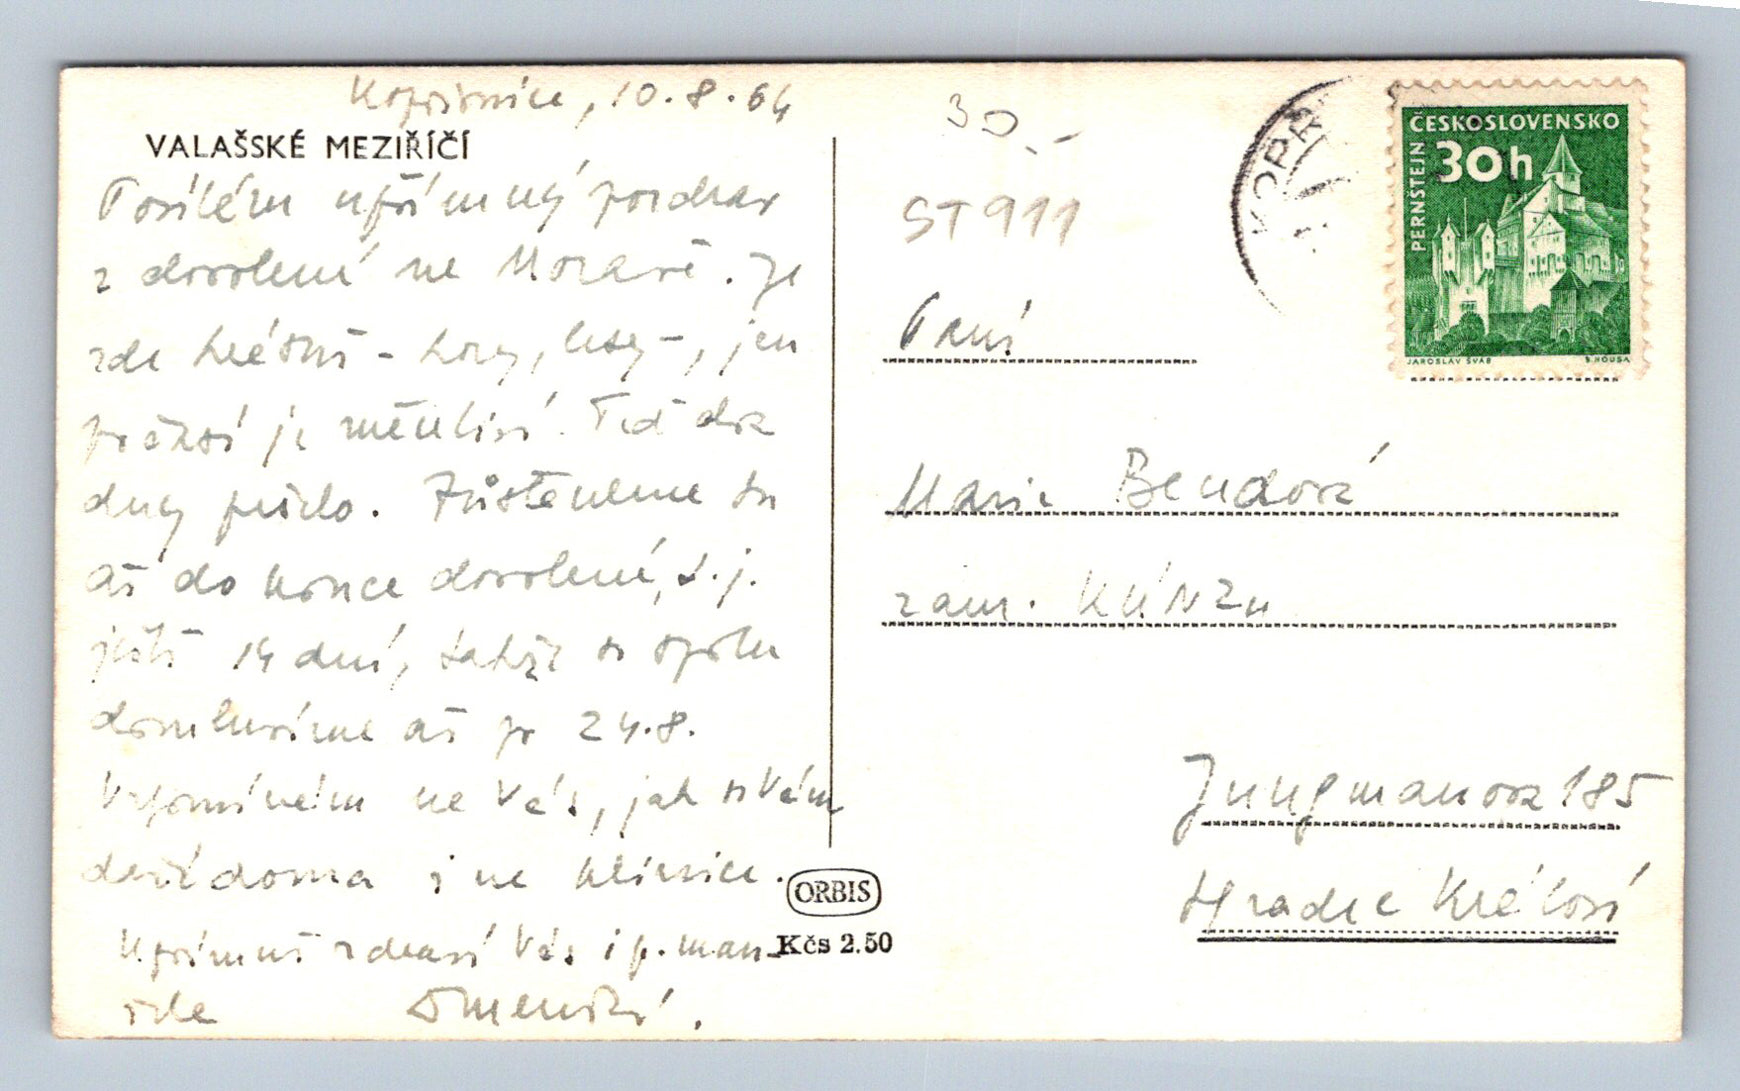 Kopřivnice, 10.8.64
VALAŠSKÉ MEZIŘÍČÍ
Posílám upřímný pozdrav
z dovolené na Moravě. Je
zde krásně - hory, lesy -, jen
počasí je měnlivé. Teď dva
dny pršelo. Zůstaneme tu
až do konce dovolené, t.j.
ještě 14 dní, takže si spolu
domluvíme až po 24.8.
Vzpomínám na Vás, jak se Vám
daří doma i na klinice.
Upřímně zdraví Vás i p. man-
žela
ORBIS
Kčs 2.50
30.-
ST 911
KOPŘ
ČESKOSLOVENSKO
30h
PERNŠTEJN
JAROSLAV ŠVÁB
B. HOUSA
Paní
Marie Bendová
zam. KÚNZu
Jungmanova 185
Hradec Králové